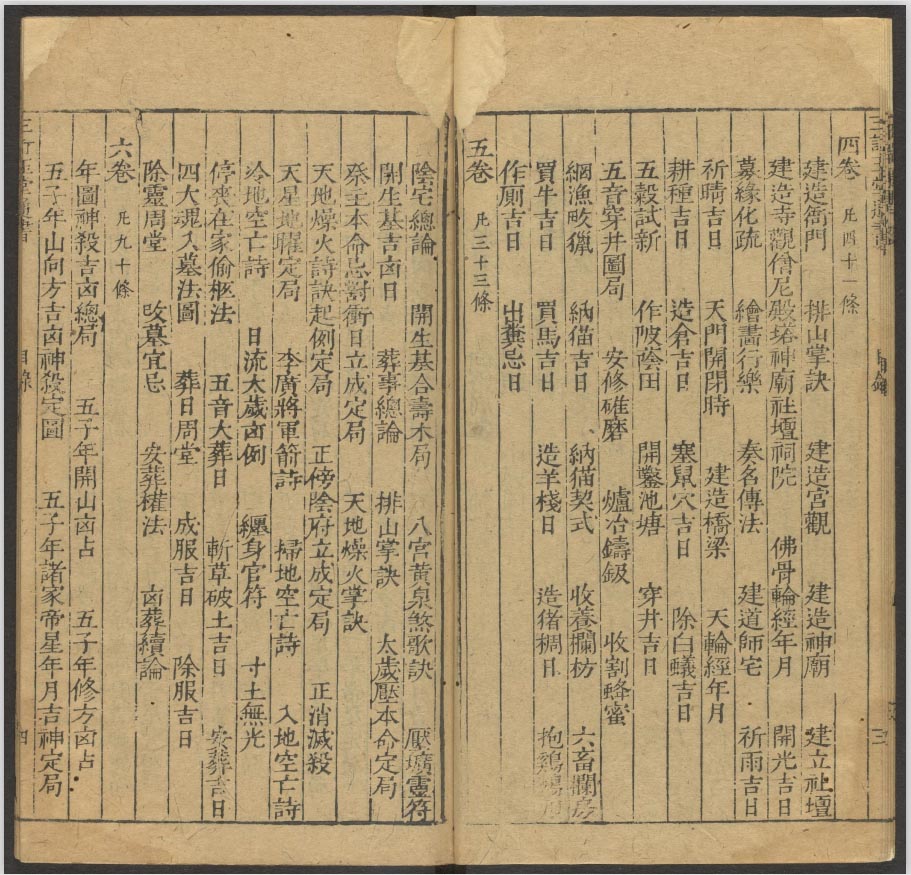 四卷 凡四十一條
建造衙門 排山掌訣 建造宮觀 建造神廟 建立社壇
建造寺觀僧尼殿塔神廟社壇祠院 佛骨輪經年月 開光吉日
募緣化疏 繪畵行樂 奏名傳法 建道師宅 祈雨吉日
祈晴吉日 天門開閉時 建造橋梁 天輪經年月
耕種吉日 造倉吉日 塞鼠穴吉日 除白蟻吉日
五穀試新 作陂蔭田 開鑿池塘 穿井吉日
五音穿井圖局 安修碓磨 爐冶鑄鈒 收割蜂蜜
網漁畋獵 納猫吉日 納猫契式 收養欄枋 六畜欄
買牛吉日 買馬吉日 造羊棧日 造猪稠日 抱鷄
作厠吉日 出糞忌日
五卷 凡三十三條
陰宅總論 開生基合壽木局 八宮黄泉煞歌訣 壓壙靈符
開生基吉凶日 葬事總論 排山掌訣 太歲壓本命定局
祭主本命忌對衝日立成定局 天地燥火掌訣
天地燥火詩訣起例定局 正傍陰府立成定局 正消滅殺
天星地曜定局 李廣將軍箭詩 掃地空亡詩 入地空亡詩
冷地空亡詩 日流大歲凶例 纏身官符 寸土無光
停喪在家偷柩法 五音大葬日 斬草破土吉日 安葬吉日
四大魂入墓法圖 葬日周堂 成服吉日 除服吉日
除靈周堂 改墓宜忌 安葬權法 凶葬續論
六卷 凡九十條
年圖神殺吉凶總局 五子年開山凶占 五子年修方凶占
五子年山向方吉凶神殺定圖 五子年諸家帝星年月吉神定局